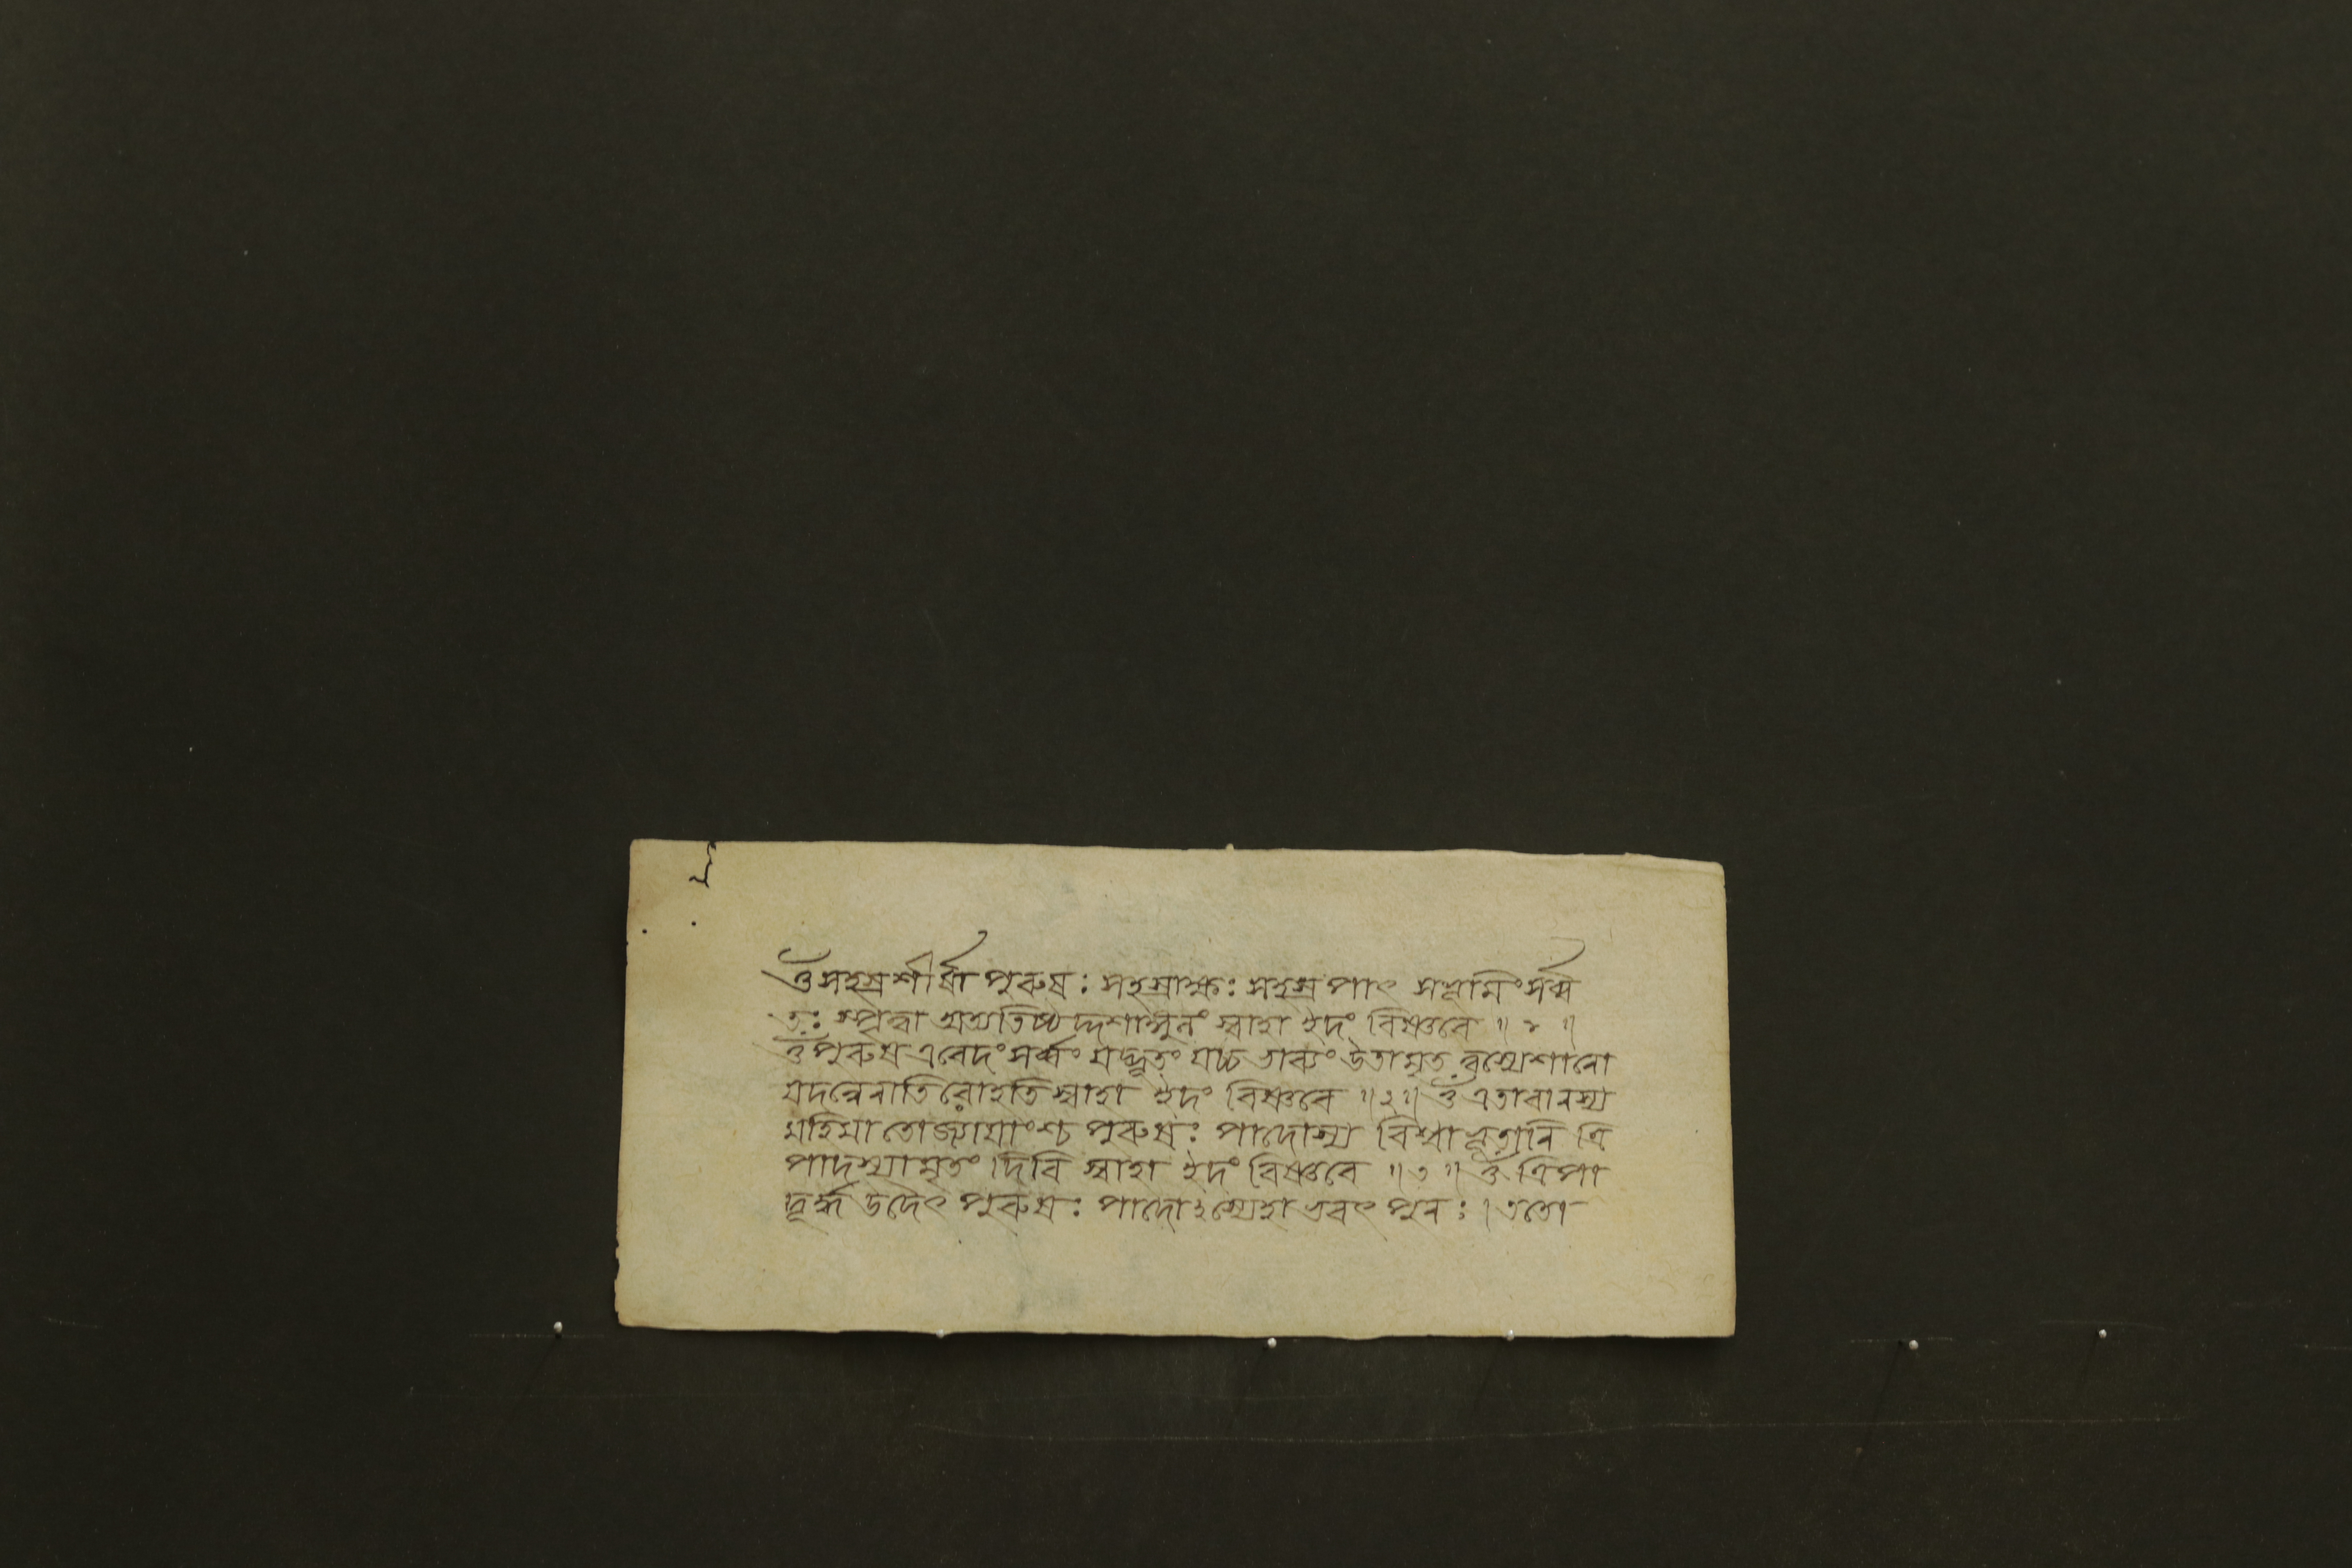 ওঁ সহস্রশীর্ষা পুৰুষঃ সহস্রাক্ষঃ সহস্রপাৎ সভূমিং সর্ব্ব
তঃ স্পৃত্বা অত্যতিষ্ঠদ্দশাঙ্গুলং স্বাহা ইদং বিষ্ণবে ॥ ১ ॥
ওঁ পুৰুষ এবেদং সর্ব্বং যদ্ভূতং যচ্চ ভাব্যং উতামৃতত্বস্যেশানো
যদন্নেনাতিরোহতি স্বাহা ইদং বিষ্ণবে ॥ ২ ॥ ওঁ এতাবানস্য
মহিমাতোজ্যায়াংশ্চ পুৰুষঃ পাদোস্য বিশ্বাভূতানি ত্রি
পাদস্যামৃতং দিবি স্বাহা ইদং বিষ্ণবে ॥ ৩ ॥ ওঁ ত্রিপা
দূর্দ্ধ উদৈৎ পুৰুষঃ পাদোঽস্যেহাভবৎ পুনঃ । ততো